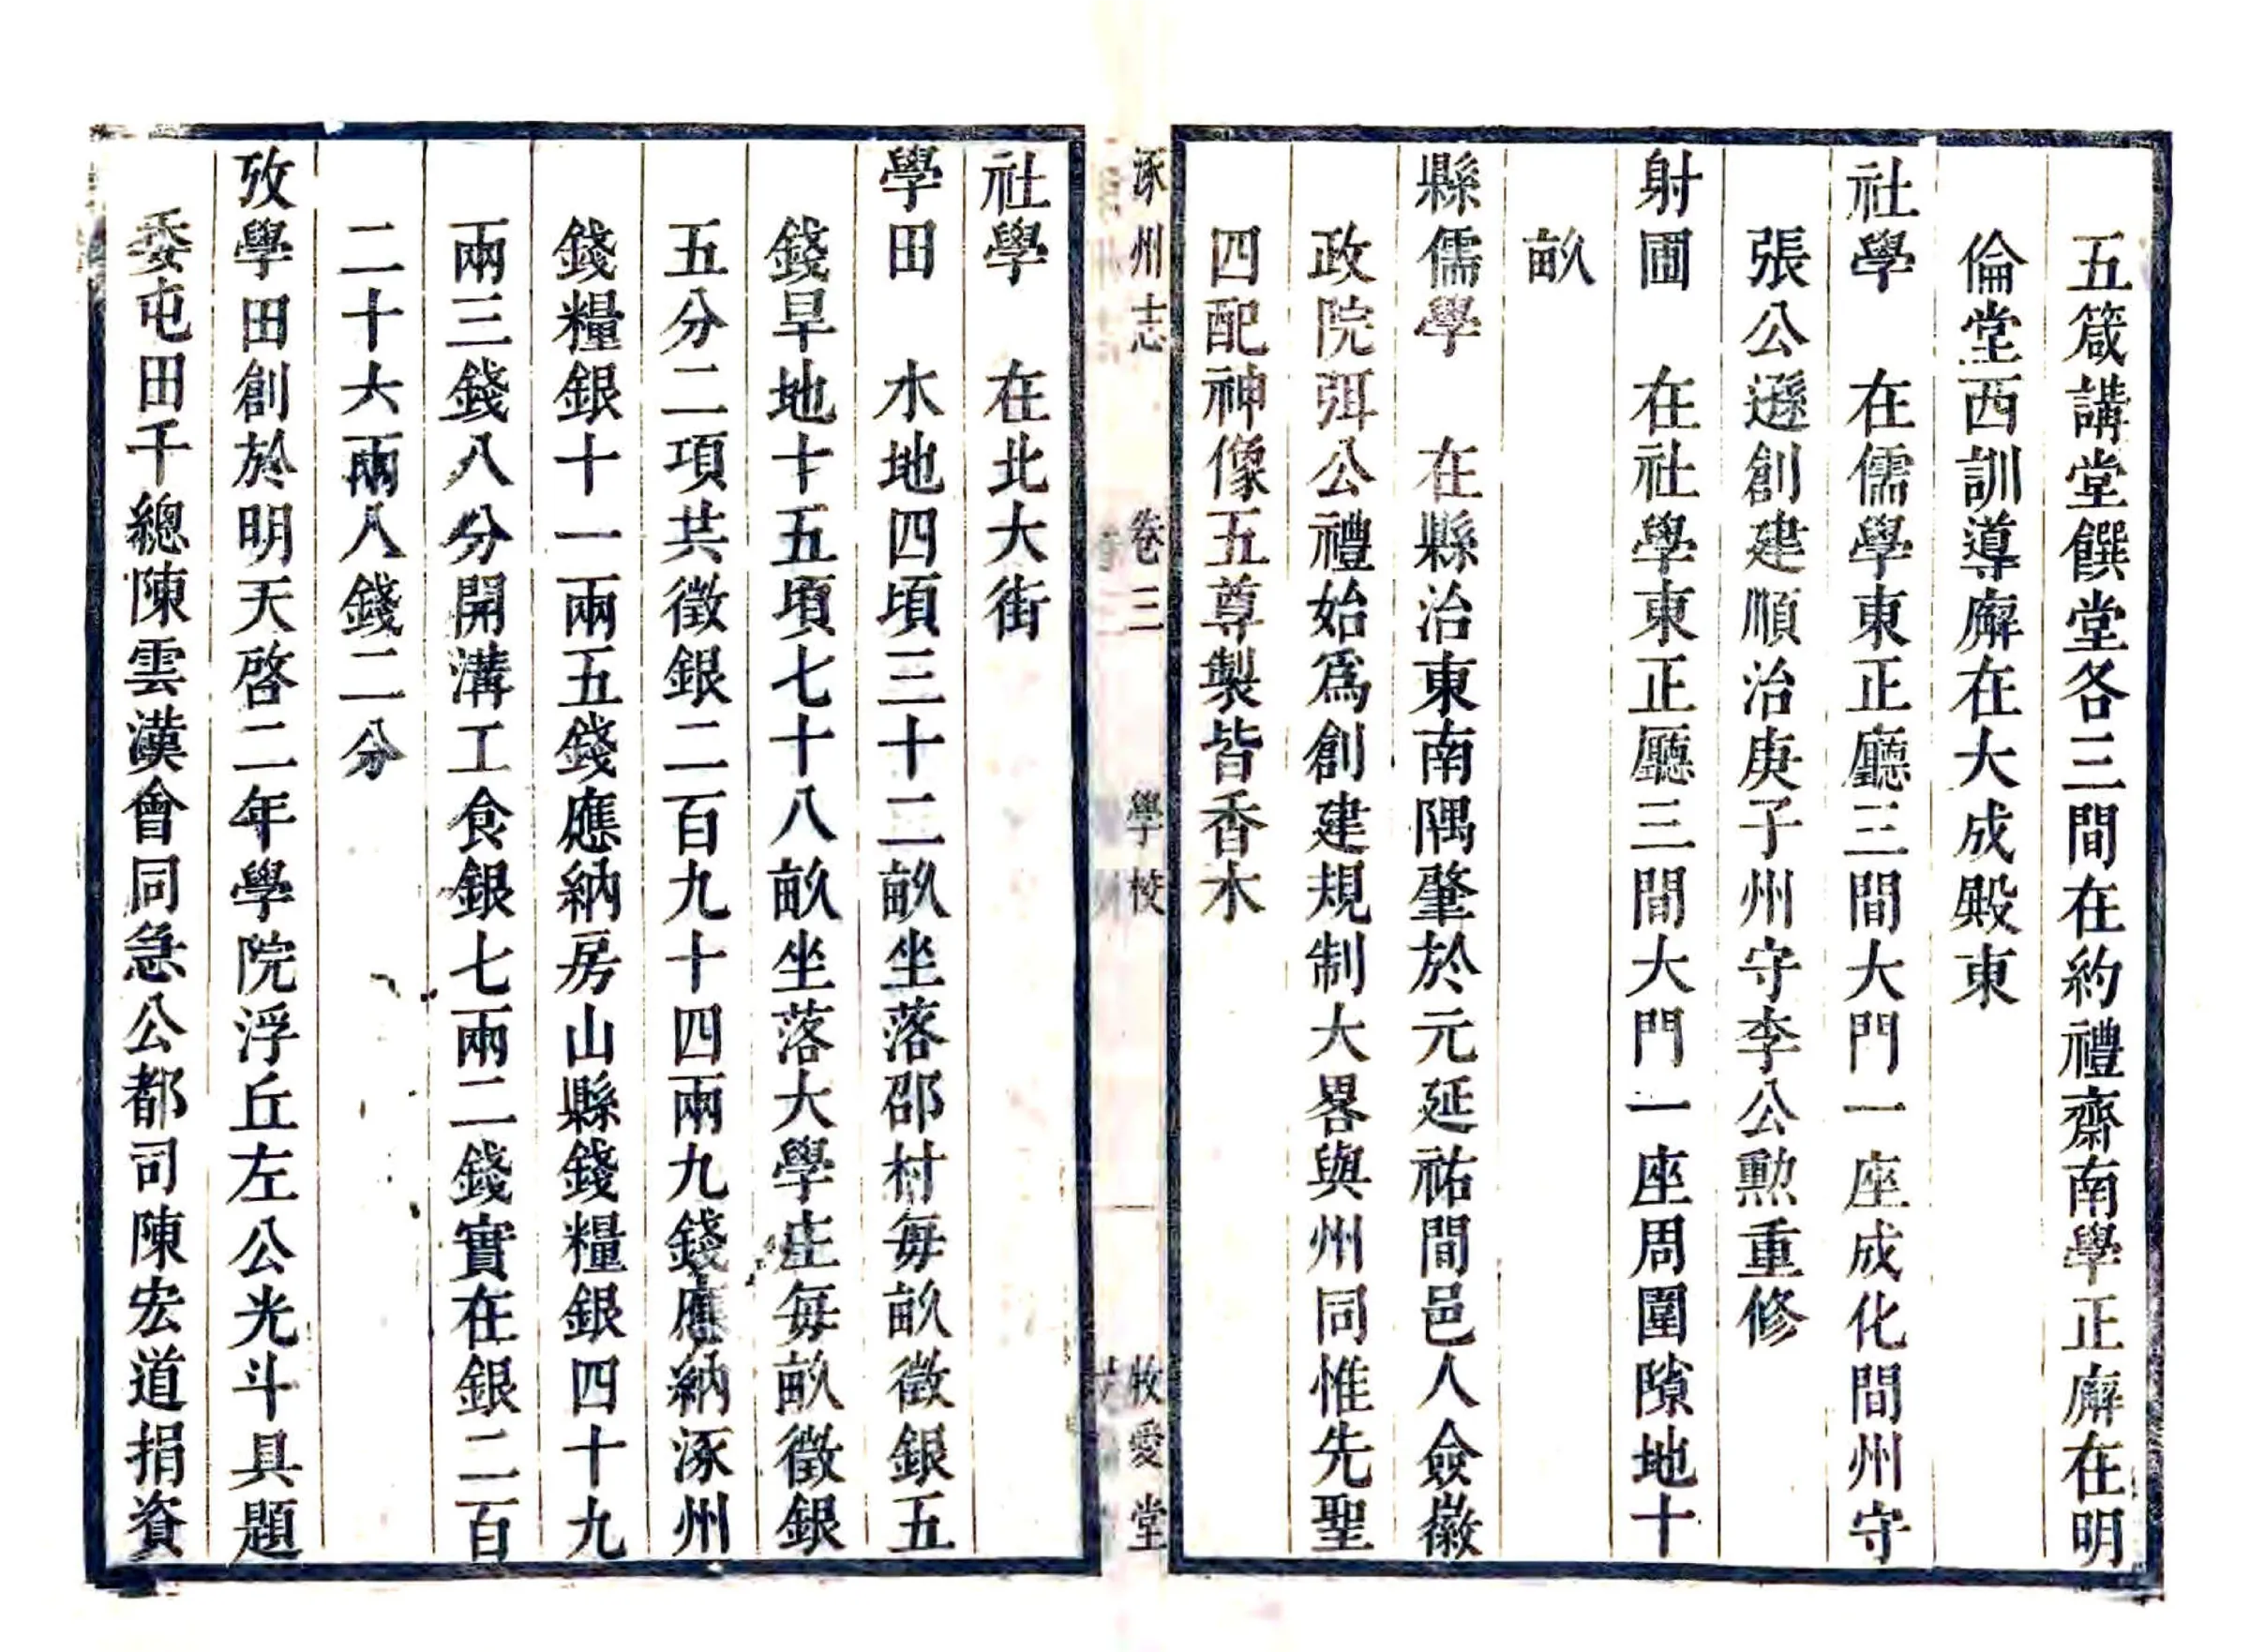 五箴講堂饌堂各三間在約禮齋南學正廨在明
倫堂西訓導廨在大成殿東
社學　在儒學東正廳三間大門一座成化間州守
張公遜創建順治庚子州守李公勲重修
射圃　在社學東正廳三間大門一座周圍隙地十
畝
縣儒學　在縣治東南隅肇於元延祐間邑人僉徽
政院弭公禮始爲創建規制大畧與州同惟先聖
四配神像五尊製皆香木
涿州志　卷三　學校　一　敉愛堂
社學　在北大街
學田　水地四頃三十二畝坐落邵村每畝徵銀五
錢旱地十五頃七十八畝坐落大學庄每畝徵銀
五分二項共徵銀二百九十四兩九錢應納涿州
錢糧銀十一兩五錢應納房山縣錢糧銀四十九
兩三錢八分開溝工食銀七兩二錢實在銀二百
二十六兩八錢二分
攷學田創於明天啓二年學院浮丘左公光斗具題
委屯田千總陳雲漢會同急公都司陳宏道捐資